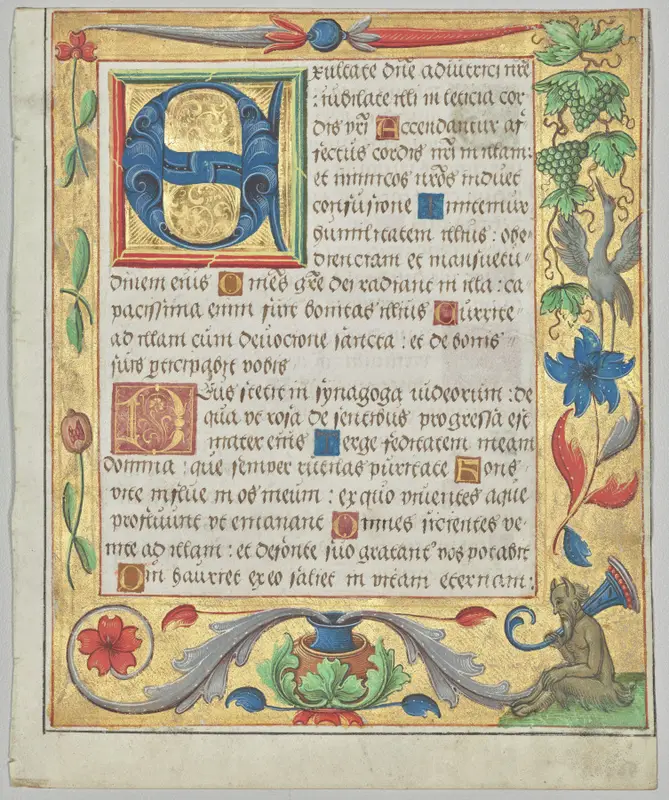 Exultate dne adiutrici nre
: iubilate illi in leticia cor
dis vri Accendantur af
fectus cordis nri in illam:
et inimicos nros induet
confusione Imitemur
humilitatem illius: obe
dienciam et mansuetu
dinem eius Omes gre dei radiant in illa: ca
pacissima enim fuit bonitas illius Currite
ad illam cum devocione sancta: et de bonis
suis pticipabit vobis
Deus stetit in synagoga iudeorum: de
qua ut rosa de sentibus progressa est
mater eius Terge feditatem meam
domina: que semper rutilas puritate Fons
vite influe in os meum: ex quo viventes aque
profluunt ut emanant Omnes sicientes ve
nite ad illam: et de fonte suo gratant vos potabit
Qui hauriet ex eo saliet in vitam eternam: